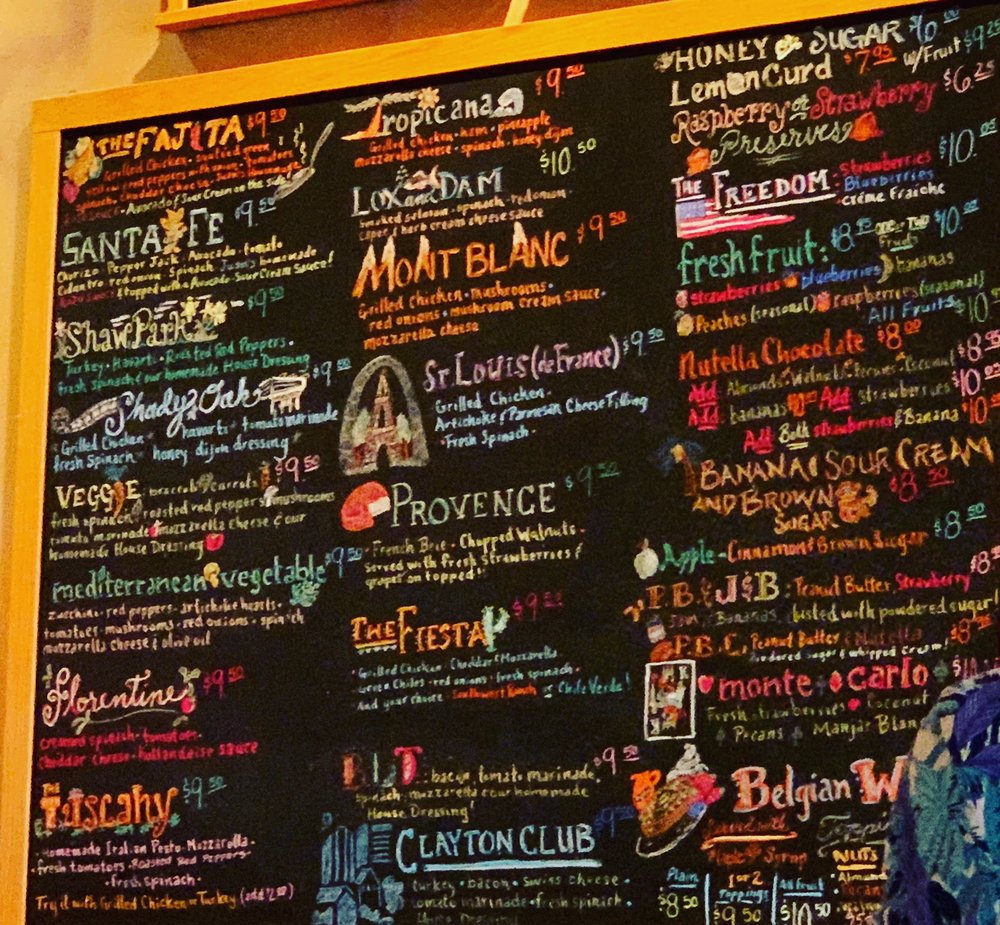 THE FAJITA $9.50
Grilled Chicken · sautéed green,
yellow & red peppers with onions · tomatoes
spinach, cheddar cheese · homemade
Avocado & Sour Cream on the side!
SANTA FE $9.50
Chorizo · Pepper Jack · Avocado · tomato
Cilantro · red onion · Spinach · homemade
& topped w/ Avocado Sour Cream Sauce!
Shaw Park $9.50
Turkey · Havarti · Roasted Red Peppers ·
fresh spinach & our homemade House Dressing
Shady Oak $9.50
Grilled Chicken · havarti · tomato marinade
fresh Spinach · honey dijon dressing
VEGGIE $9.50
broccoli · carrots
fresh spinach · roasted red peppers · mushrooms
tomato marinade · mozzarella cheese & our
homemade House Dressing
mediterranean vegetable $9.50
zucchini · red peppers · artichoke hearts ·
tomatoes · mushrooms · red onions · spinach
mozzarella cheese & olive oil
Florentine $9.50
creamed spinach · tomatoes ·
cheddar cheese · hollandaise sauce
THE TUSCANY $9.50
Homemade Italian Pesto · Mozzarella ·
fresh tomatoes · Roasted Red Peppers ·
· fresh spinach ·
Try it with Grilled Chicken or Turkey (add 2.50)
Tropicana $9.50
Grilled chicken · ham · pineapple
mozzarella cheese · spinach · honey dijon
LOX and DAM $10.50
smoked salmon · spinach · red onion ·
caper & herb cream cheese sauce
MONT BLANC $9.50
Grilled chicken · mushrooms ·
red onions · mushroom cream sauce ·
mozzarella cheese
ST. LOUIS (de France) $9.50
Grilled Chicken ·
Artichoke & Parmesan Cheese Filling
· Fresh Spinach ·
PROVENCE $9.50
· French Brie · Chopped Walnuts ·
served with fresh strawberries &
grapes on topped!
THE FIESTA $9.50
· Grilled Chicken · Cheddar & Mozzarella
Green Chiles · red onions · fresh spinach ·
And your choice · Southwest Ranch or Chile Verde!
B.L.T. : bacon, tomato marinade, $9.50
spinach · mozzarella & our homemade
House Dressing!
CLAYTON CLUB
turkey · bacon · swiss cheese ·
tomato marinade · fresh spinach ·
House Dressing
HONEY or SUGAR $6.00
Lemon Curd $7.95 w/Fruit $9.25
Raspberry or Strawberry $6.25
Preserves
THE FREEDOM : strawberries $10.00
Blueberries
Crème Fraîche
fresh fruit: $8.95 one or TWO Fruits $10.00
strawberries blueberries bananas
Peaches (seasonal) raspberries (seasonal)
All Fruits $10
Nutella Chocolate $8.00
Add Almonds Walnuts Pecans Coconut $8.
Add bananas or Add strawberries $10.
Add Both strawberries & Banana $10
BANANA & SOUR CREAM
AND BROWN SUGAR $8.50
Apple - Cinnamon & Brown Sugar $8.50
P.B. & J & B : Peanut Butter, Strawberry $8.
Jam, Bananas, dusted with powdered sugar!
P.B.C. Peanut Butter & Nutella $8.
Powdered sugar & whipped cream!
monte carlo
Fresh strawberries Coconut
Pecans Manjar Blan
Belgian W
Served with
Syrup
Plain
$8.50
1 or 2 Toppings
$9.50
All Fruit
$10.50
Toppi
NUTS
Almond
Pecan